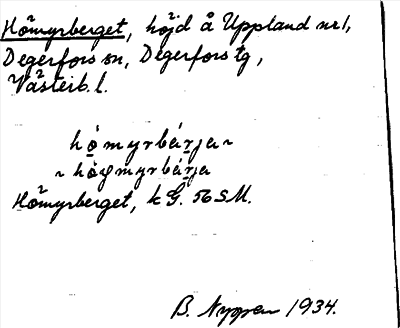 Hömyrberget, höjd å Uppland nr 1,
Degerfors sn, Degerfors tg,
Västerb. l.
hömyrbärja ~
~ högmyrbärja
Hömyrberget, k G. 56 S.M.
B. Nyman 1934.